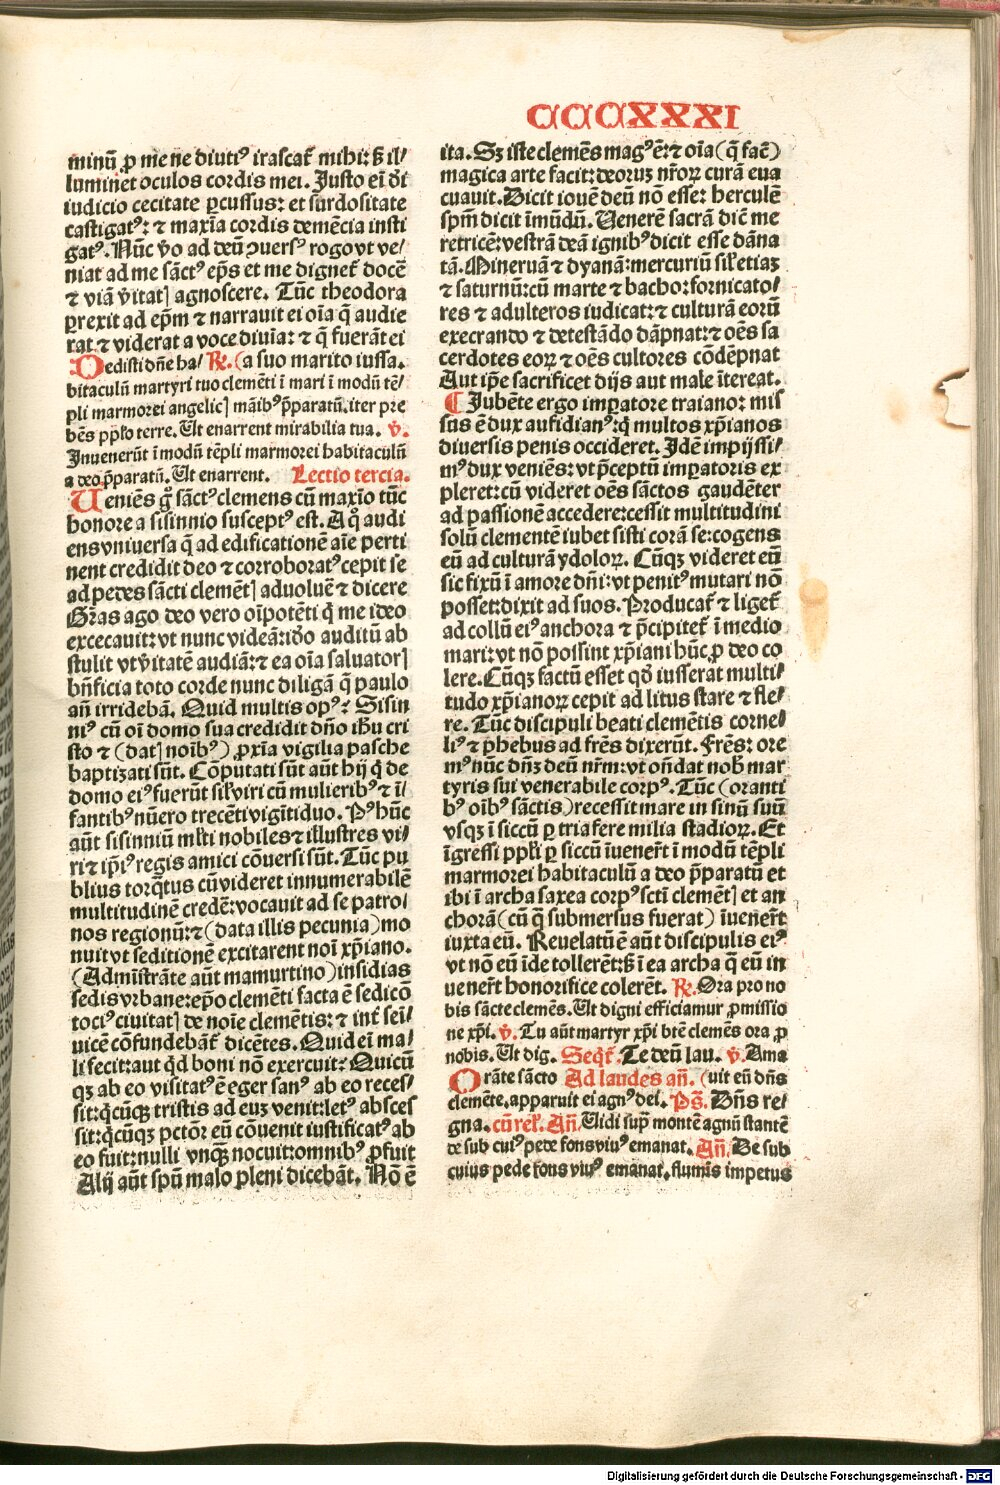 CCCXXXI
minū ꝓ me ne diutiꝰ irascat᷑ mihi: sꝫ il/
luminet oculos cordis mei. Justo eī d̄i
iudicio cecitate ꝑcussus: et surdositate
castigatꝰ: ⁊ maxīa cordis demēcia insti
gatꝰ. Nūc v̄o ad deū ꝯuersꝰ rogo vt ve/
niat ad me sāctꝰ ep̄s et me dignet᷑ docē
⁊ viā v̄itatꝭ agnoscere. Tūc theodora
ꝑrexit ad ep̄m ⁊ narrauit ei oīa q̄ audie
rat ⁊ viderat a voce diuīa: ⁊ q̄ fuerāt ei
Dedisti dn̄e ha/ R̄. (a suo marito iussa.
bitaculū martyri tuo clemēti ī mari ī modū tē/
pli marmorei angelicꝭ māibꝰ p̄paratū. iter pre
bēs pp̄lo terre. Vt enarrent mirabilia tua. v̄.
Inuenerūt ī modū tēpli marmorei habitaculū
a deo p̄paratū. Vt enarrent. Lectio tercia.
Ueniēs gͦ sāctꝰ clemens cū maxīo tūc
honore a sisinnio susceptꝰ est. A qͦ audi
ens vniuersa q̄ ad edificationē aīe perti
nent credidit deo ⁊ corroboratꝰ cepit se
ad pedes sācti clemētꝭ aduoluē ⁊ dicere
Gr̄as ago deo vero oīpotēti q̄ me ideo
excecauit: vt nunc videā: id̄o auditū ab
stulit vt v̄itatē audiā: ⁊ ea oīa saluatorꝭ
bn̄ficia toto corde nunc diligā q̄ paulo
an̄ irridebā. Quid multis opꝰ? Sisin
niꝰ cū oī domo sua credidit dn̄o ih̄u cri
sto ⁊ (datꝭ noībꝰ) ꝓxīa vigilia pasche
baptizati sūt. Cōputati sūt aūt hij q̄ de
domo eiꝰ fuerūt sil̄ viri cū mulieribꝰ ⁊ ī/
fantibꝰ nūero trecēti vigīti duo. Pꝰ hūc
aūt sisinniū ml̄ti nobiles ⁊ illustres vi/
ri ⁊ ip̄iꝰ regis amici cōuersi sūt. Tūc pu
blius torq̄tus cū videret innumerabilē
multitudinē credē: vocauit ad se patro/
nos regionū: ⁊ (data illis pecunia) mo
nuit vt seditionē excitarent noī xp̄iano.
(Admīstrāte aūt mamurtino) insidias
sedis vrbane: ep̄o clemēti facta ē sedicō
tociꝰ ciuitatꝭ de noīe clemētis: ⁊ int᷑ sei/
uicē cōfundebāt᷑ dicētes. Quid eī ma/
li fecit: aut qd̄ boni nō exercuit? Quicū
qꝫ ab eo visitatꝰ ē eger sanꝰ ab eo reces/
sit: qͥcūqꝫ tristis ad euꝫ venit: letꝰ absces
sit: qͥcūqꝫ pctōr̄ eū cōuenit iustificatꝰ ab
eo fuit: nulli vnqꝫ nocuit: omnibꝰ ꝓfuit
Alij aūt spū malo pleni dicebāt. Nō ē
ita. Sꝫ iste clemēs magꝰ ē: ⁊ oīa (q̄ facē)
magica arte facit: deoruꝫ nr̄orꝝ curā eua
cuauit. Dicit iouē deū nō esse: herculē
spm̄ dicit īmūdū. Venerē sacrā diē me
retricē: vestrā deā ignibꝰ dicit esse dāna
tā. Mineruā ⁊ dyanā: mercuriū sil̄ etiaꝫ
⁊ saturnū: cū marte ⁊ bacho: fornicato/
res ⁊ adulteros iudicat: ⁊ culturā eorū
execrando ⁊ detestādo dāpnat: ⁊ oēs sa
cerdotes eorꝝ ⁊ oēs cultores cōdēpnat
Aut ip̄e sacrificet dijs aut male ītereat.
¶ Jubēte ergo imꝑatore traiano: mis
sus ē dux aufidianꝰ: qͥ multos xp̄ianos
diuersis penis occideret. Idē impijssi/
mꝰ dux veniēs: vt p̄ceptū imꝑatoris ex
pleret: cū videret oēs sāctos gaudēter
ad passionē accedere: cessit multitudini
solū clementē iubet sisti corā se: cogens
eū ad culturā ydolorꝝ. Cūqꝫ videret eū
sic fixū ī amore dn̄i: vt penitꝰ mutari nō
posset: dixit ad suos. Producat᷑ ⁊ liget᷑
ad collū eiꝰ anchora ⁊ p̄cipitet᷑ ī medio
mari: vt nō possint xp̄iani hūc ꝓ deo co
lere. Cūqꝫ factū esset qd̄ iusserat multi/
tudo xp̄ianorꝝ cepit ad litus stare ⁊ fle/
re. Tūc discipuli beati clemētis corne/
liꝰ ⁊ phebus ad fr̄es dixerūt. Fr̄es: ore
mꝰ nūc dn̄ꝫ deū nr̄m: vt on̄dat nob̄ mar
tyris sui venerabile corpꝰ. Tūc (oranti
bꝰ oībꝰ sāctis) recessit mare in sinū suū
vsqꝫ ī siccū ꝑ tria fere milia stadiorꝝ. Et
īgressi pp̄li ꝑ siccū īuener̄t ī modū tēpli
marmorei habitaculū a deo p̄paratū et
ibi ī archa saxea corpꝰ scti clemētꝭ et an
chorā (cū q̄ submersus fuerat) īuener̄t
iuxta eū. Reuelatū ē aūt discipulis eiꝰ
vt nō eū īde tollerēt: sꝫ ī ea archa q̄ eū in
uener̄t honorifice colerēt. R̄. Ora pro no
bis sācte clemēs. Vt digni efficiamur ꝓmissio
ne xp̄i. v̄. Tu aūt martyr xp̄i btē clemēs ora ꝓ
nobis. Vt dig. Seqt᷑. Te deū lau. v̄. Ama
Orāte sācto Ad laudes an̄. (uit eū dn̄s
clemēte, apparuit ei agnꝰ dei. Ps̄. Dn̄s re/
gna. cū rel̄. An̄. Vidi supͣ montē agnū stantē
de sub cuiꝰ pede fons viuꝰ emanat. An̄. De sub
cuius pede fons viuꝰ emanat, flumīs impetus
Digitalisierung gefördert durch die Deutsche Forschungsgemeinschaft - DFG